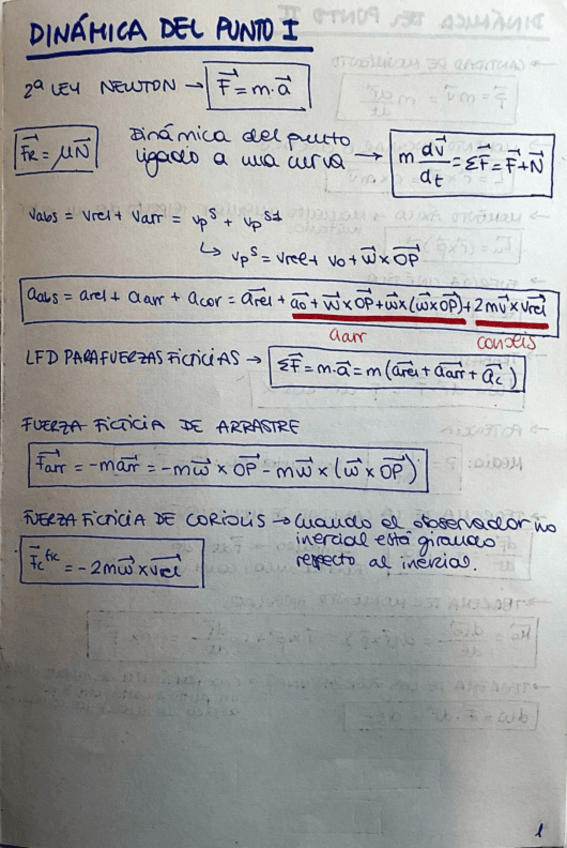 DINÁMICA DEL PUNTO I
2ª LEY NEWTON → F⃗ = m·a⃗
F⃗R = μN⃗ Dinámica del punto ligado a una curva → m dv⃗/dt = ΣF⃗ = F⃗ + N⃗
vabs = vrel + varr = vp^S + vp^S1
↳ vp^S = vrel + vo + w⃗ × OP⃗
aabs = arel + aarr + acor = a⃗rel + a⃗o + w⃗ × OP⃗ + w⃗ × (w⃗ × OP⃗) + 2mw⃗ × v⃗rel
aarr coriolis
LFD PARA FUERZAS FICTICIAS → ΣF⃗ = m·a⃗ = m(a⃗rel + a⃗arr + a⃗c)
FUERZA FICTICIA DE ARRASTRE
F⃗arr = -ma⃗rr = -mw⃗ × OP⃗ - mw⃗ × (w⃗ × OP⃗)
FUERZA FICTICIA DE CORIOLIS → cuando el observador no
inercial está girando
respecto al inercial.
F⃗c^fic = -2mw⃗ × v⃗rel
1